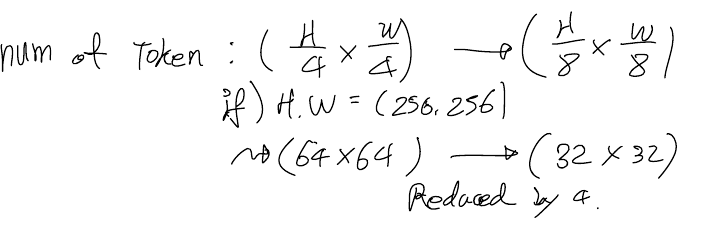 num of Token : ( H/4 × W/4 ) → ( H/8 × W/8 )
if) H.W = (256, 256)
↝ (64 × 64) → (32 × 32)
Reduced by 4.